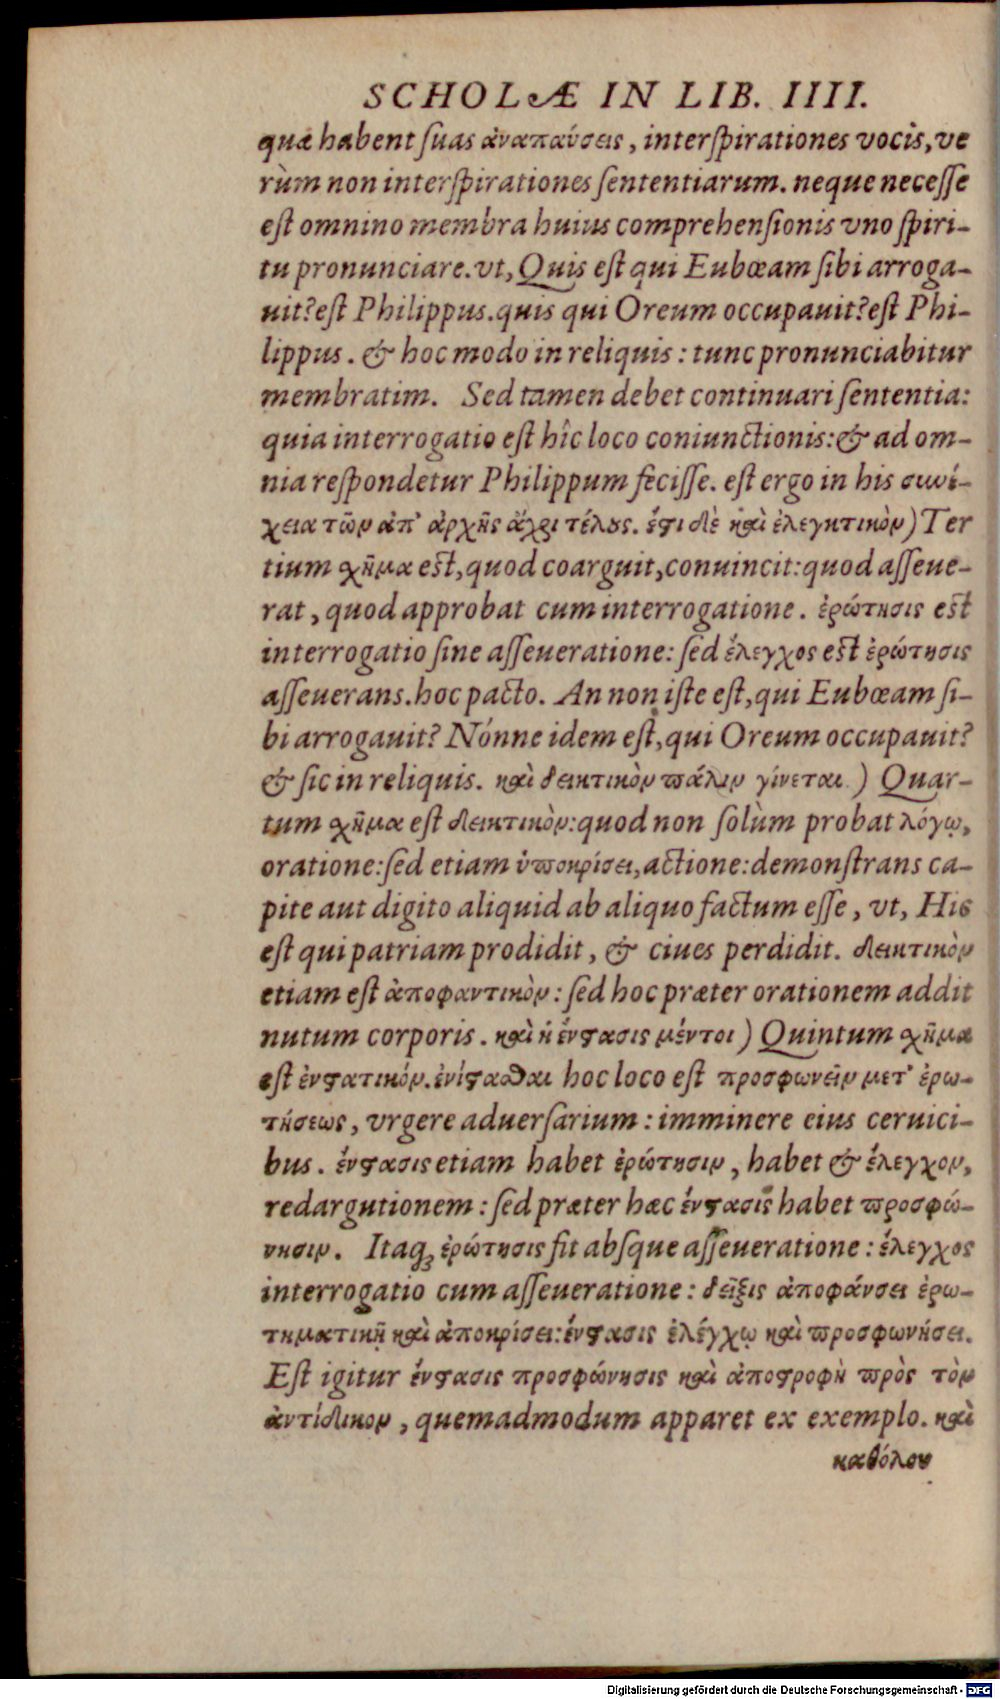 SCHOLÆ IN LIB. IIII.
quæ habent ſuas ἀναπαύσεις, interſpirationes vocis, ve
rùm non interſpirationes ſententiarum. neque neceſſe
eſt omnino membra huius comprehenſionis vno ſpiri-
tu pronunciare. vt, Quis eſt qui Eubœam ſibi arroga-
uit? eſt Philippus. quis qui Oreum occupauit? eſt Phi-
lippus. & hoc modo in reliquis: tunc pronunciabitur
membratim. Sed tamen debet continuari ſententia:
quia interrogatio eſt hîc loco coniunctionis: & ad om-
nia reſpondetur Philippum feciſſe. eſt ergo in his συνέ-
χεια τῶν ἀπ' ἀρχῆς ἄχρι τέλους. ἔτι δὲ καὶ ἐλεγκτικὸν) Ter
tium σχῆμα eſt, quod coarguit, conuincit: quod aſſeue-
rat, quod approbat cum interrogatione. ἐρώτησις eſt
interrogatio ſine aſſeueratione: ſed ἔλεγχος eſt ἐρώτησις
aſſeuerans. hoc pacto. An non iſte eſt, qui Eubœam ſi-
bi arrogauit? Nónne idem eſt, qui Oreum occupauit?
& ſic in reliquis. καὶ δεικτικὸν πάλιν γίνεται.) Quar-
tum σχῆμα eſt δεικτικὸν: quod non ſolùm probat λόγῳ,
oratione: ſed etiam ὑποκρίσει, actione: demonſtrans ca-
pite aut digito aliquid ab aliquo factum eſſe, vt, Hic
eſt qui patriam prodidit, & ciues perdidit. δεικτικὸν
etiam eſt ἀποφαντικὸν: ſed hoc præter orationem addit
nutum corporis. καὶ ἡ ἔνστασις μέντοι) Quintum σχῆμα
eſt ἐνστατικόν. ἐνίστασθαι hoc loco eſt προσφωνεῖν μετ' ἐρω-
τήσεως, vrgere aduerſarium: imminere eius ceruici-
bus. ἔνστασις etiam habet ἐρώτησιν, habet & ἔλεγχον,
redargutionem: ſed præter hæc ἔνστασις habet προσφώ-
νησιν. Itaq; ἐρώτησις fit abſque aſſeueratione: ἔλεγχος
interrogatio cum aſſeueratione: δεῖξις ἀποφάνσει ἐρω-
τηματικῇ καὶ ἀποκρίσει: ἔνστασις ἐλέγχῳ καὶ προσφωνήσει.
Eſt igitur ἔνστασις προσφώνησις καὶ ἀποστροφὴ πρὸς τὸν
ἀντίδικον, quemadmodum apparet ex exemplo. καὶ
καθόλου
Digitalisierung gefördert durch die Deutsche Forschungsgemeinschaft - DFG